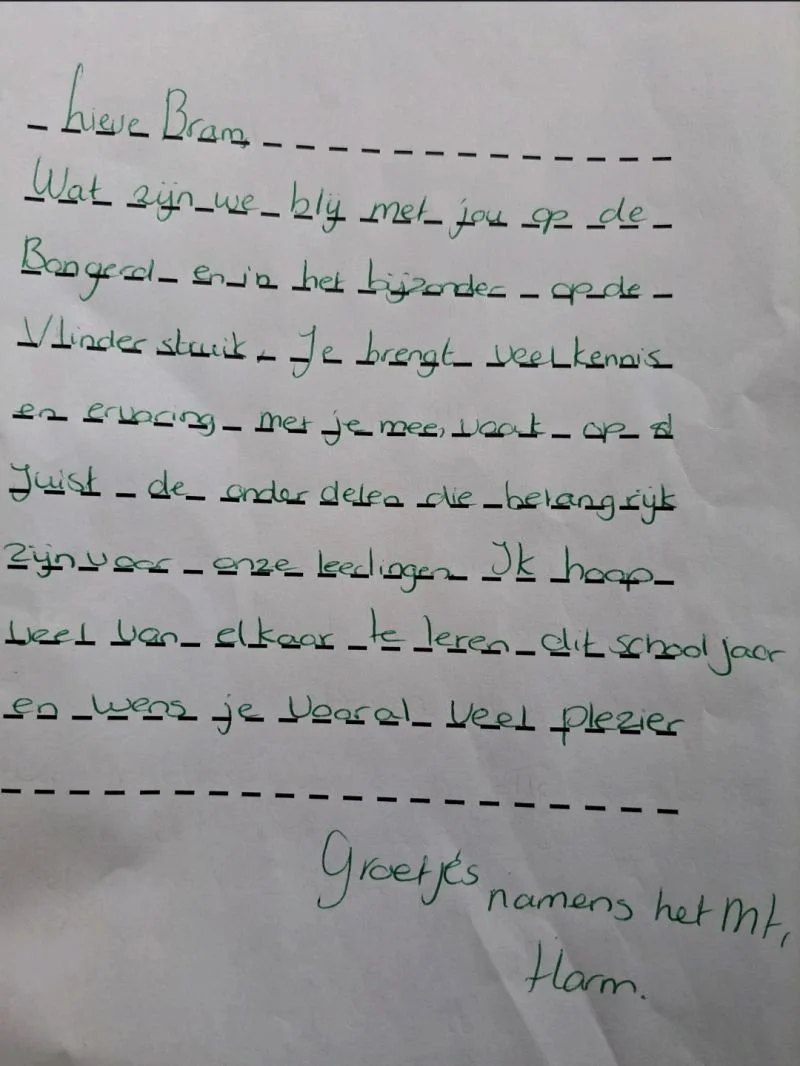 Lieve Bram,
Wat zijn we blij met jou op de
Bongerd en in het bijzonder op de
Vlinderstruik. Je brengt veel kennis
en ervaring met je mee, vaak op
Juist de onderdelen die belangrijk
zijn voor onze leerlingen. Ik hoop
veel van elkaar te leren dit schooljaar
en wens je vooral veel plezier
Groetjes
namens het Mt,
Harm.